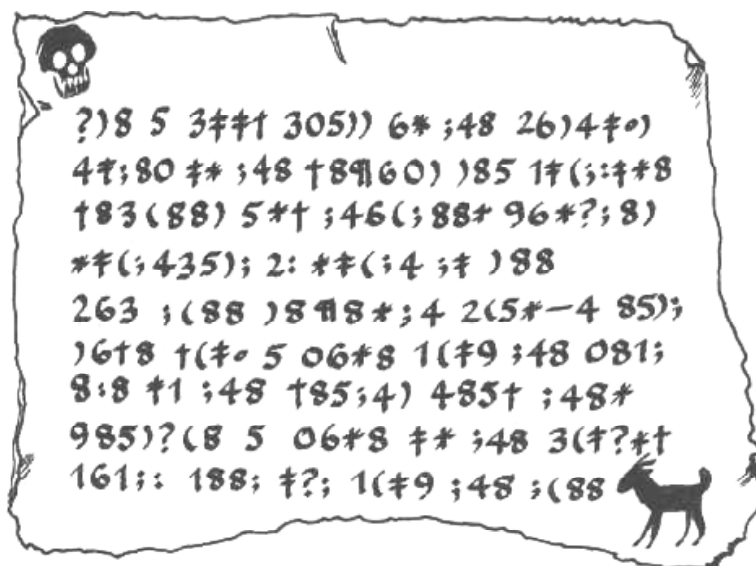 ?)8 5 3‡‡† 305)) 6* ;48 26)4‡∘)
4‡;80 ‡* ;48 †8¶60) )85 1‡(;:‡*8
†83(88) 5*† ;46(;88* 96*?;8)
*‡(;435); 2: *‡(;4 ;‡ )88
263 ;(88 )8¶8*;4 2(5*—4 85);
)6†8 †(‡∘ 5 06*8 1(‡9 ;48 081;
8:8 ‡1 ;48 †85;4) 485† ;48*
985)?(8 5 06*8 ‡* ;48 3(‡?*†
161;: 188; ‡?; 1(‡9 ;48 ;(88